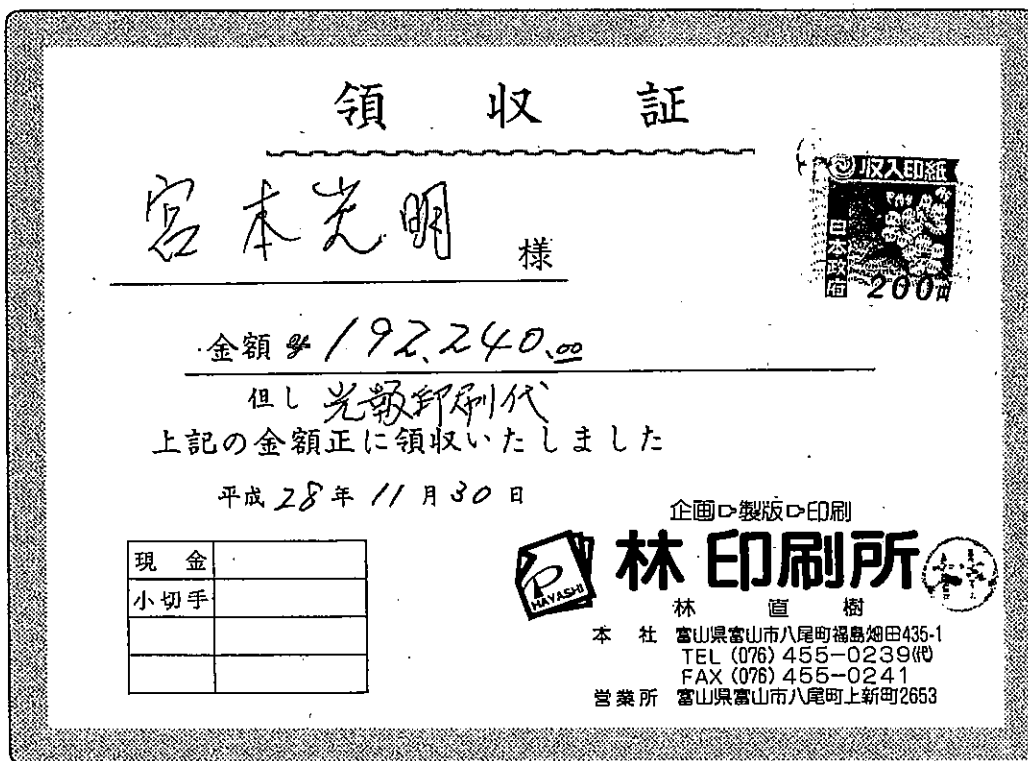 領 収 証
収入印紙
日本政府
200円
宮本光明 様
金額 ¥192,240.00
但し 光報印刷代
上記の金額正に領収いたしました
平成28年11月30日
現 金
小切手
企画▷製版▷印刷
P
HAYASHI
林 印刷所
林 直 樹
本 社 富山県富山市八尾町福島畑田435-1
TEL (076) 455-0239㈹
FAX (076) 455-0241
営業所 富山県富山市八尾町上新町2653